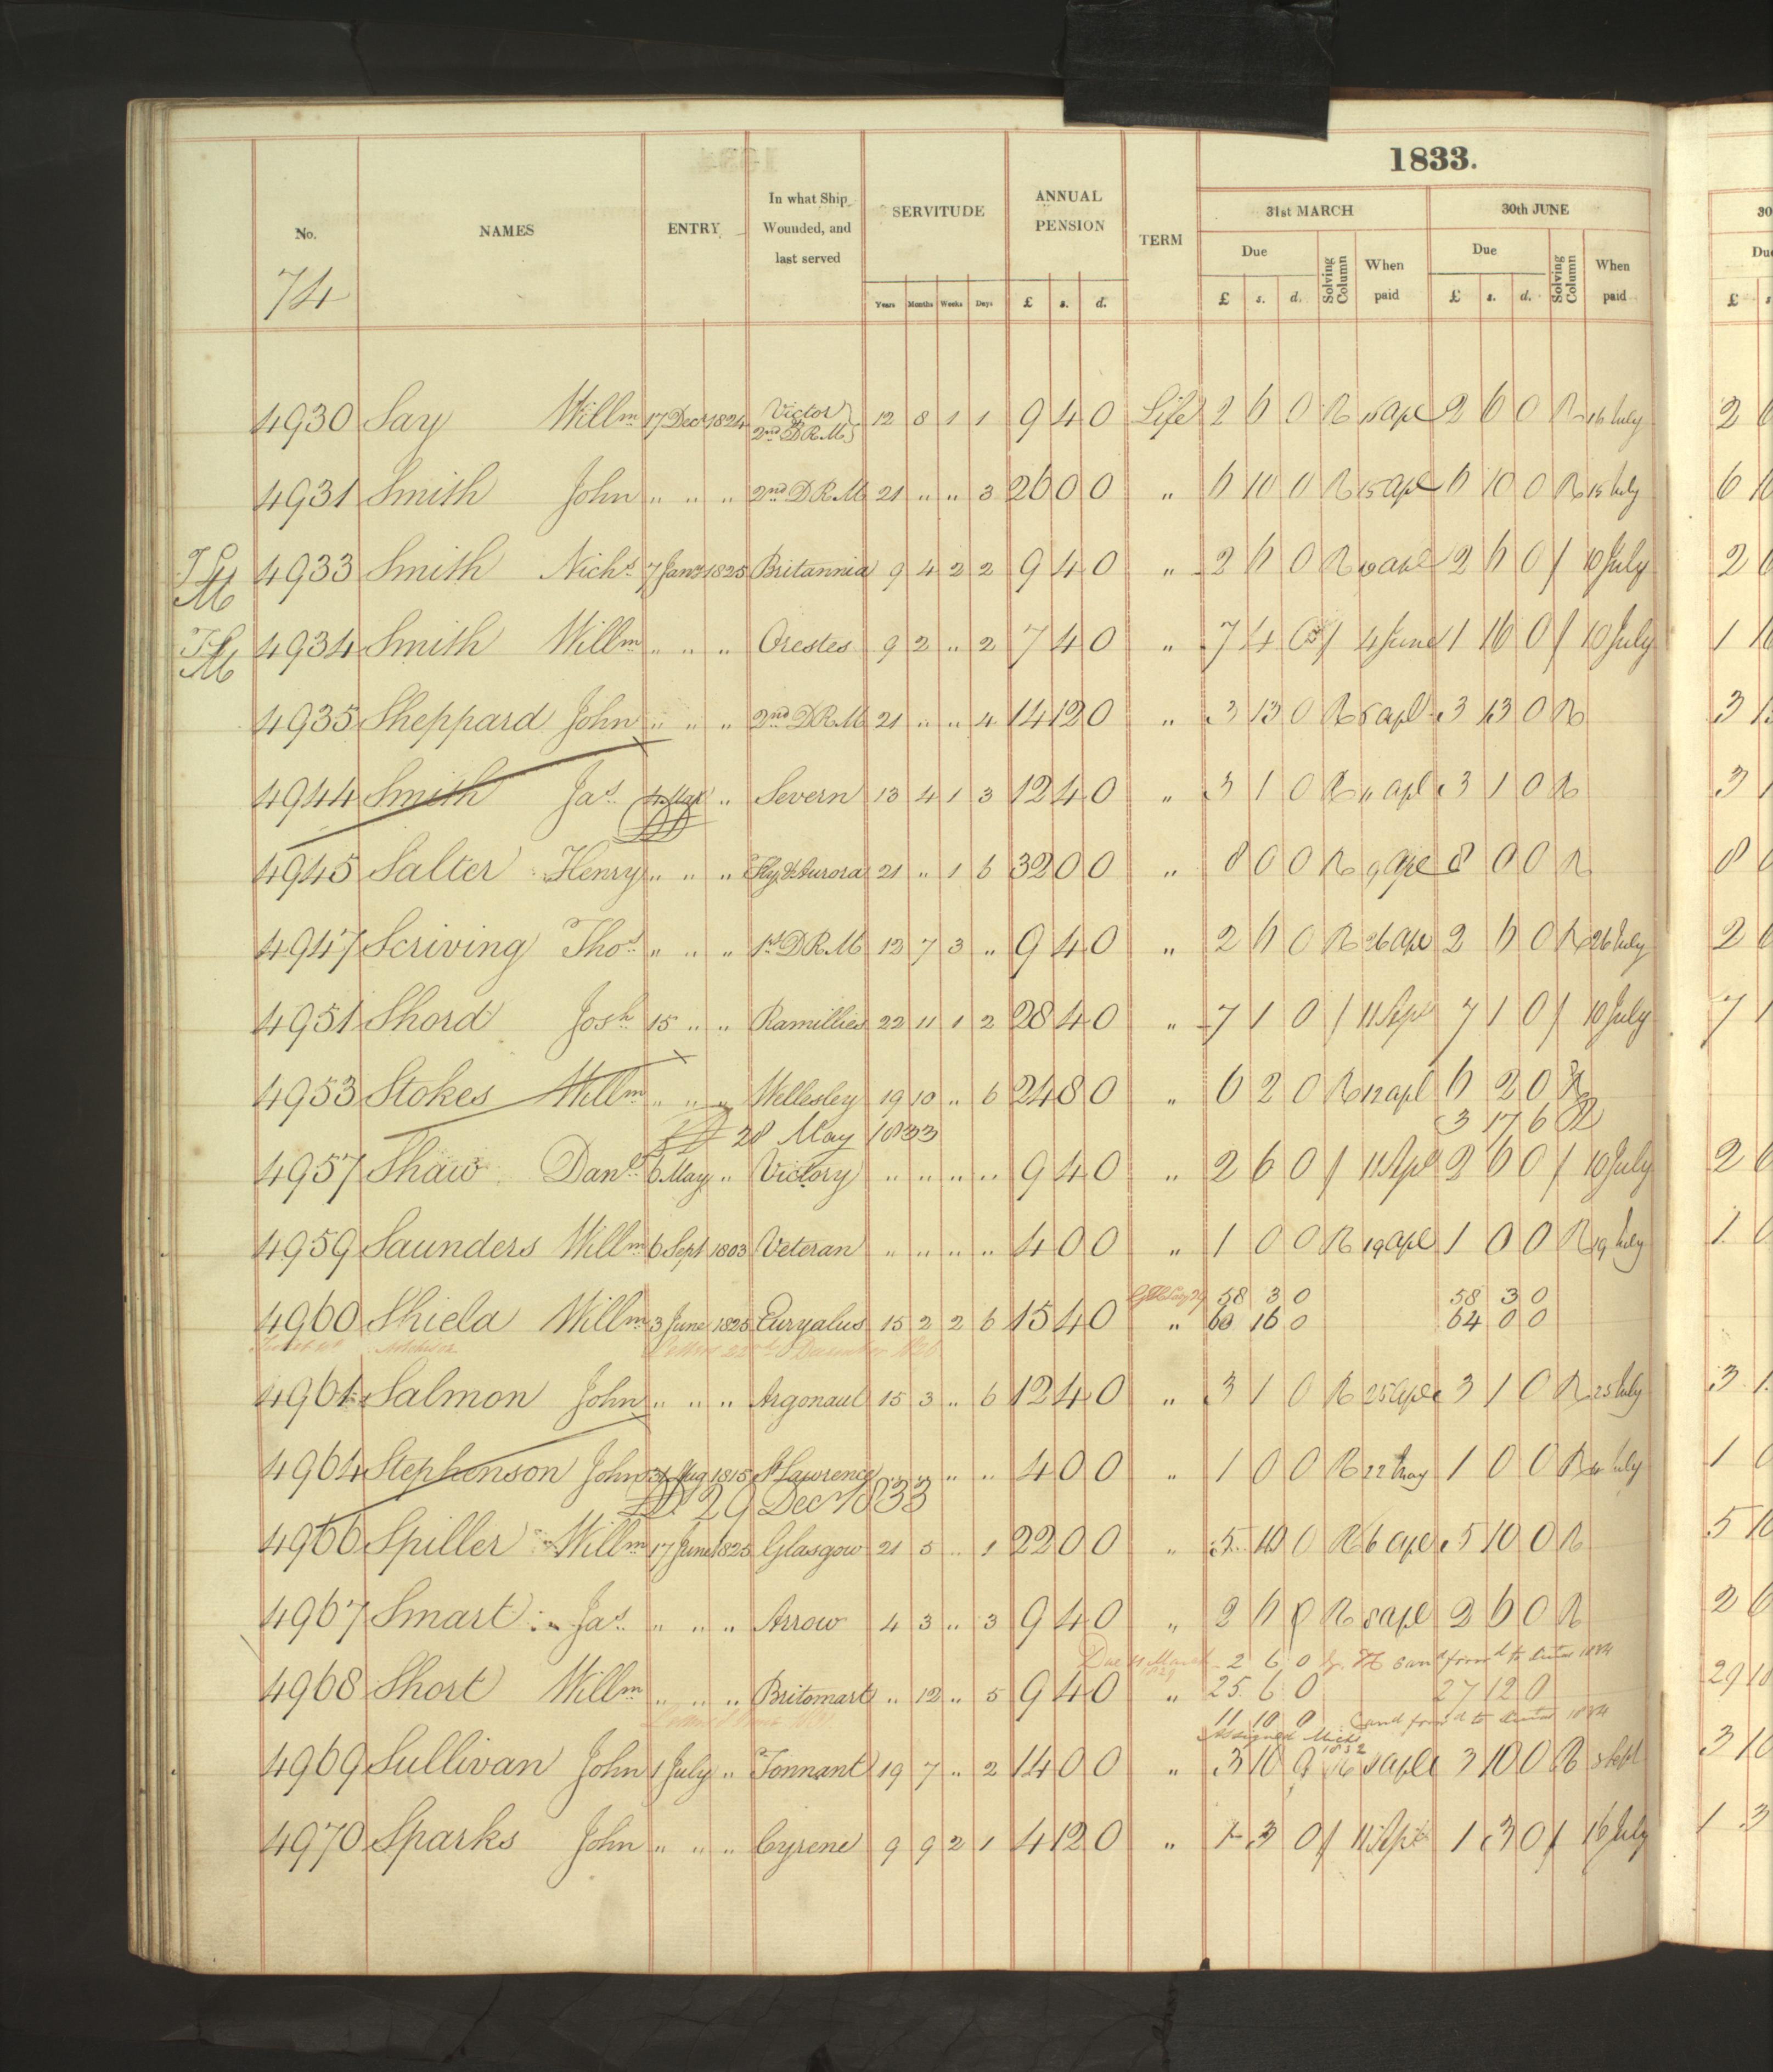 1833.
No. NAMES ENTRY In what Ship Wounded, and last served SERVITUDE ANNUAL PENSION TERM 31st MARCH 30th JUNE 30
Due Solving Column When paid Due Solving Column When paid Du
Years Months Weeks Days £ s. d. £ s. d. £ s. d. £ s
74
4930 Say Willm 17 Decr 1824 Victor 2nd D R M 12 8 1 1 9 4 0 Life 2 6 0 R 15 Apl 2 6 0 R 16 July 2 6
4931 Smith John " " " 2nd D R M 21 " " 3 26 0 0 " 6 10 0 R 15 Apl 6 10 0 R 15 July 6 10
4933 Smith Nichs 7 Jany 1825 Britannia 9 4 2 2 9 4 0 " 2 6 0 R Apl 2 6 0 / 10 July 2 6
4934 Smith Willm " " " Orestes 9 2 " 2 7 4 0 " 7 4 0 / 4 June 1 16 0 / 10 July 1 16
4935 Sheppard John " " " 2nd D R M 21 " " 4 14 12 0 " 3 13 0 R 8 Apl 3 13 0 R 3 13
4944 Smith Jas 4 Mar " Severn 13 4 1 3 12 4 0 " 3 1 0 R 11 Apl 3 1 0 R 3 1
4945 Salter Henry " " " Fly & Aurora 21 " 1 6 32 0 0 " 8 0 0 R 9 Apl 8 0 0 R 8 0
4947 Scriving Thos " " " 1st D R M 12 7 3 " 9 4 0 " 2 6 0 R 26 Apl 2 6 0 R 26 July 2 6
4951 Shord Josh 15 " " Ramillies 22 11 1 2 28 4 0 " 7 1 0 / 11 Apl 7 1 0 / 10 July 7 1
4953 Stokes Willm " " " Wellesley 19 10 " 6 24 8 0 " 6 2 0 R 12 Apl 6 2 0 R
28 May 1833 3 17 6 R
4957 Shaw Danl 6 May " Victory " " " " 9 4 0 " 2 6 0 / 11 Apl 2 6 0 / 10 July 2 6
4959 Saunders Willm 6 Sept 1803 Veteran " " " " 4 0 0 " 1 0 0 R 19 Apl 1 0 0 R 19 July 1 0
58 3 0 58 3 0
4960 Shiela Willm 3 June 1825 Euryalus 15 2 2 6 15 4 0 " 60 16 0 64 0 0
4961 Salmon John " " " Argonaut 15 3 " 6 12 4 0 " 3 1 0 R 25 Apl 3 1 0 R 25 July 3 1
4964 Stephenson John 31 Aug 1815 St Lawrence " " " " 4 0 0 " 1 0 0 R 22 May 1 0 0 R July 1 0
29 Decr 1833
4966 Spiller Willm 17 June 1825 Glasgow 21 5 " 1 22 0 0 " 5 10 0 R 6 Apl 5 10 0 R 5 10
4967 Smart Jas " " " Arrow 4 3 " 3 9 4 0 " 2 6 0 R 8 Apl 2 6 0 R 2 6
Due 31 March 1829 2 6 0
4968 Short Willm " " " Britomart " 12 " 5 9 4 0 " 25 6 0 27 12 0 29 18
11 10 0
Assigned Michs 1832
4969 Sullivan John 1 July " Tonnant 19 7 " 2 14 0 0 " 3 10 0 R 8 Apl 3 10 0 R 3 Sept 3 10
4970 Sparks John " " " Cyrene 9 9 2 1 4 12 0 " 1 3 0 / 11 Apl 1 3 0 / 16 July 1 3